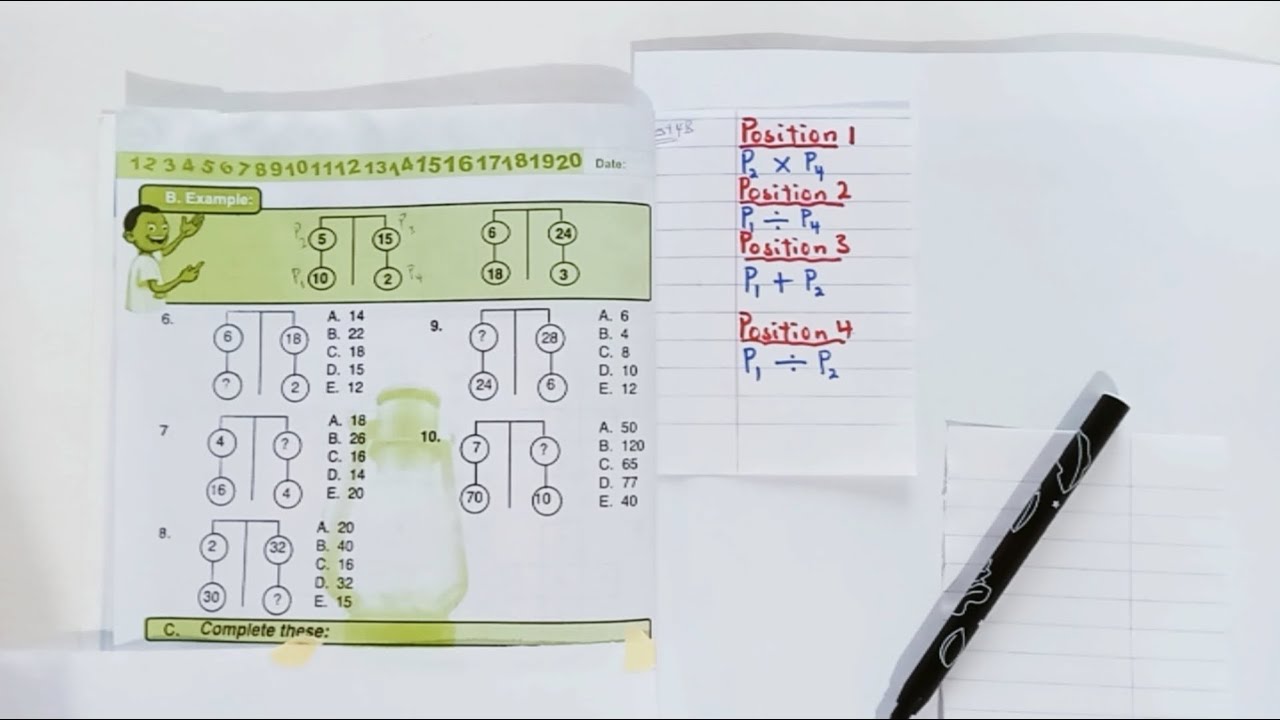 1 2 3 4 5 6 7 8 9 10 11 12 13 14 15 16 17 18 19 20 Date:
B. Example:
P2 5 15 P3
P1 10 2 P4
6 24
18 3
6.
6 18
? 2
A. 14
B. 22
C. 18
D. 15
E. 12
7
4 ?
16 4
A. 18
B. 26
C. 16
D. 14
E. 20
8.
2 32
30 ?
A. 20
B. 40
C. 16
D. 32
E. 15
9.
? 28
24 6
A. 6
B. 4
C. 8
D. 10
E. 12
10.
7 ?
70 10
A. 50
B. 120
C. 65
D. 77
E. 40
C. Complete these:
Position 1
P2 × P4
Position 2
P1 ÷ P4
Position 3
P1 + P2
Position 4
P1 ÷ P2